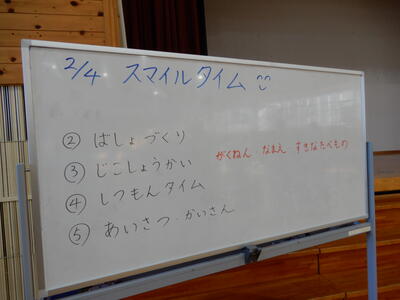 2/4 スマイルタイム
② ばしょづくり
③ じこしょうかい
がくねん・なまえ すきなたべもの
④ しつもんタイム
⑤ あいさつ・かいさん